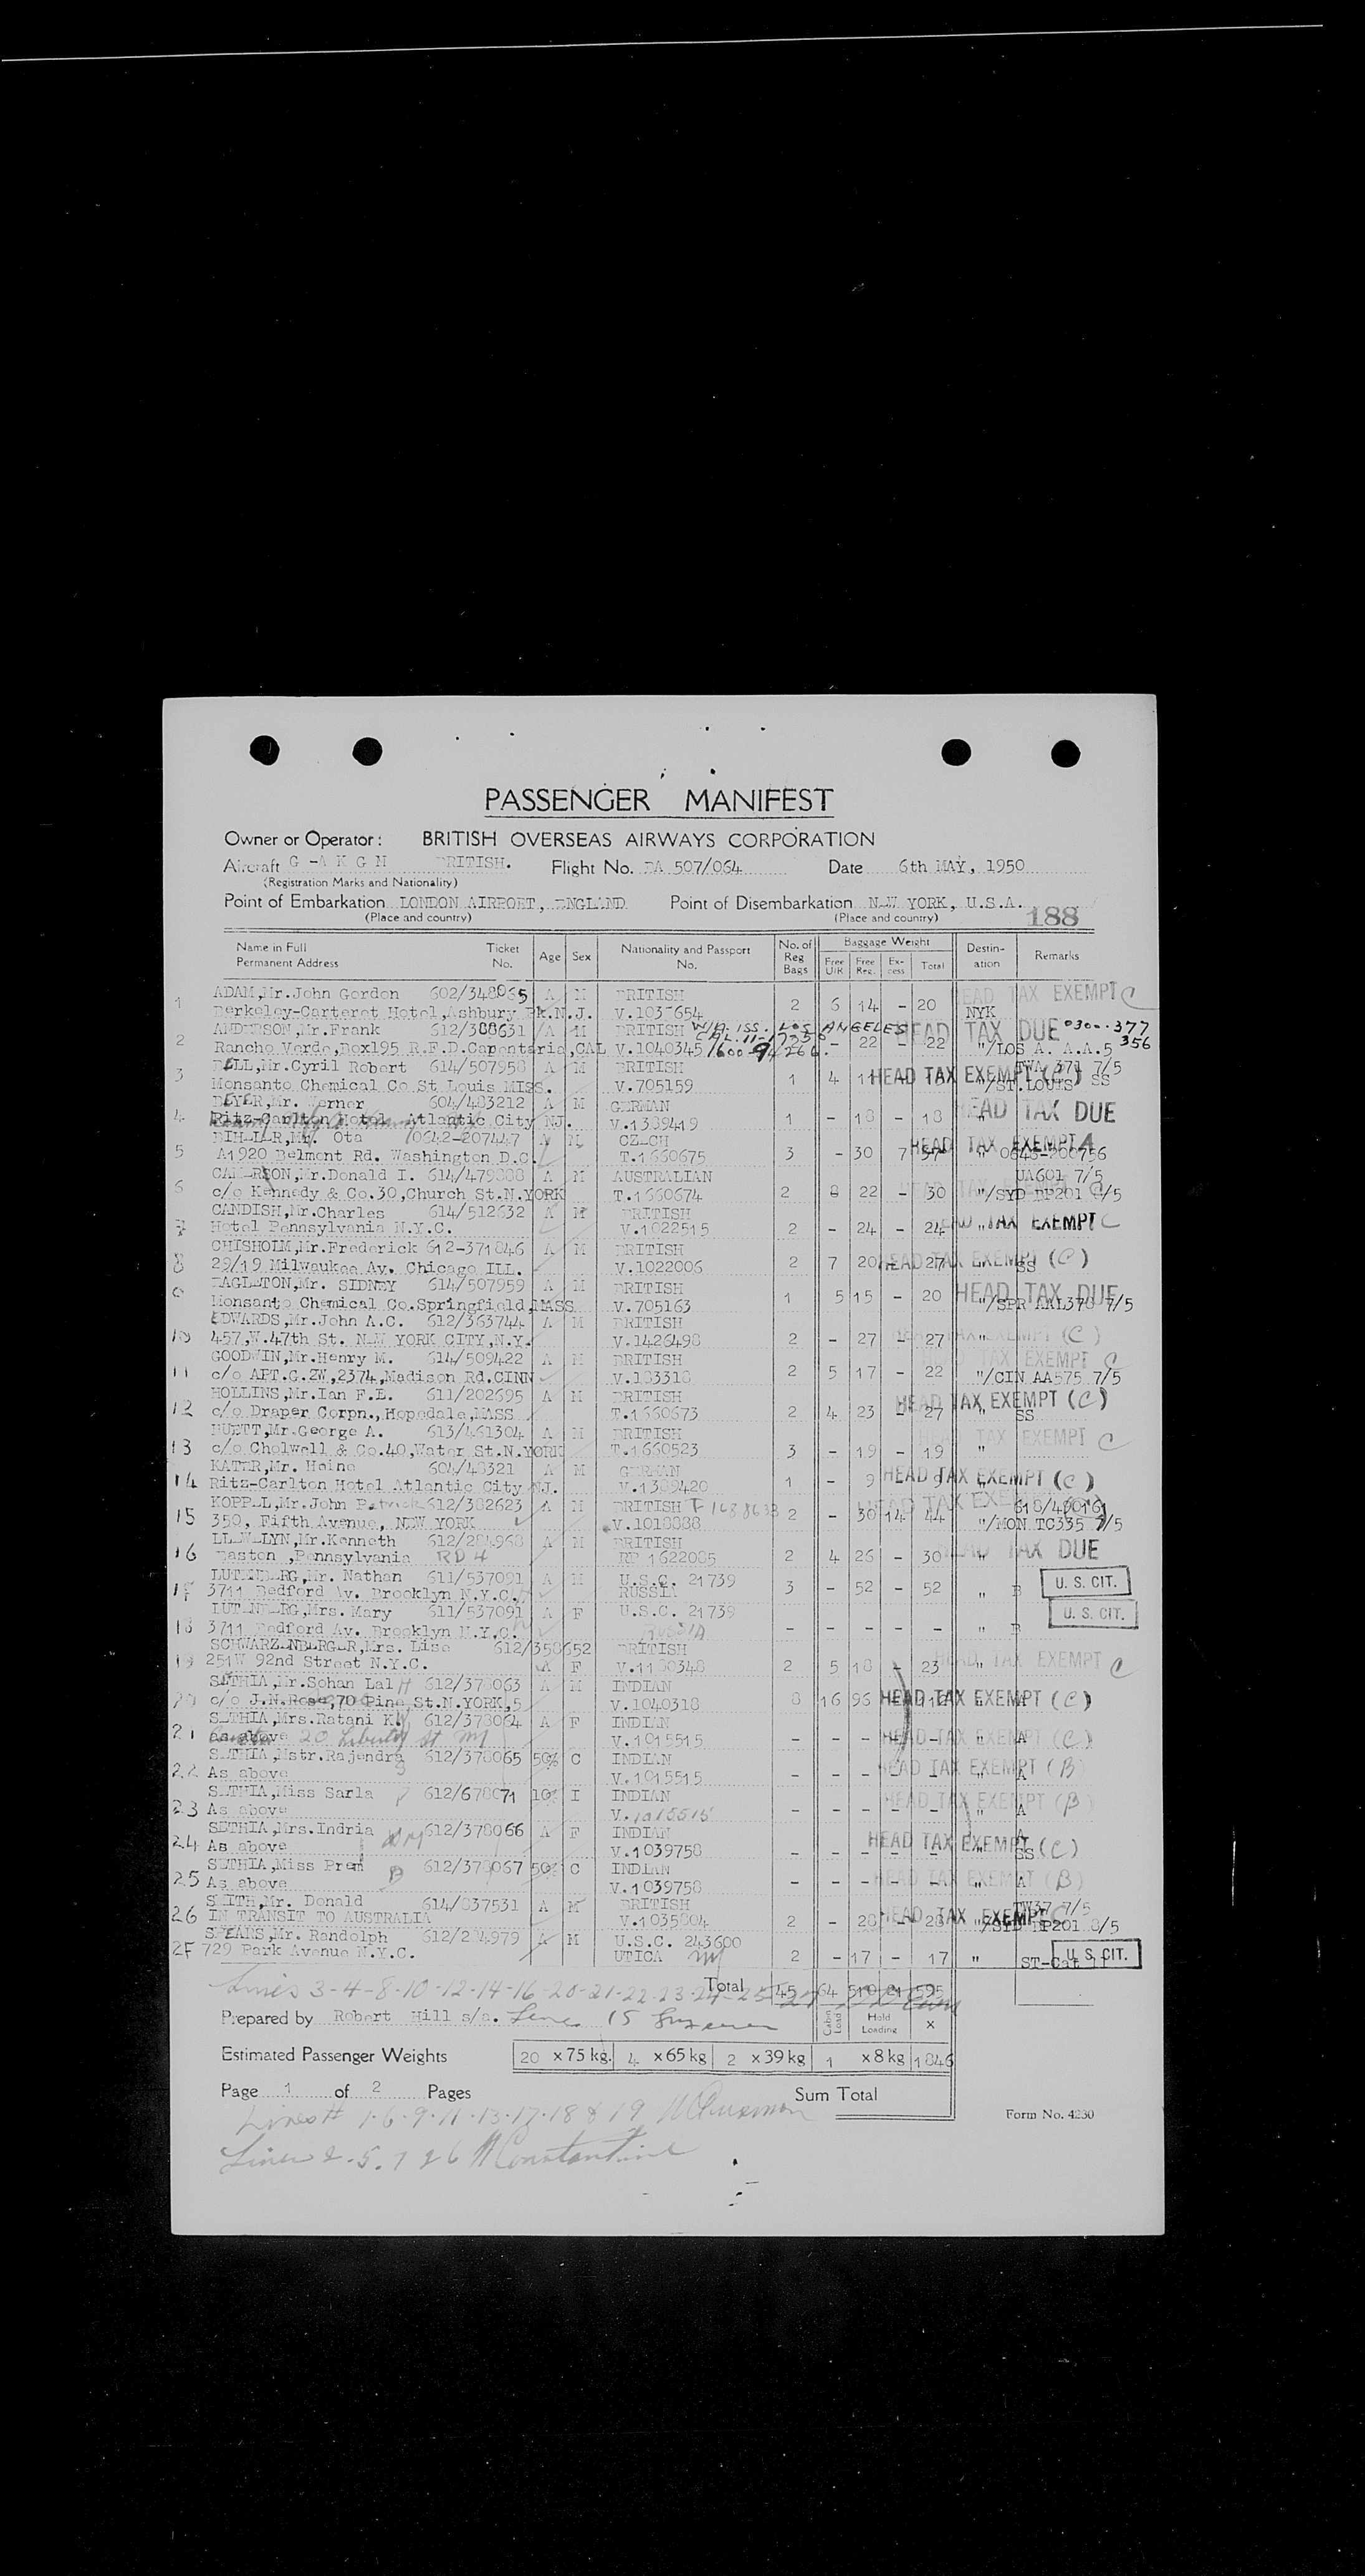 PASSENGER MANIFEST
Owner or Operator: BRITISH OVERSEAS AIRWAYS CORPORATION
Aircraft G-A K G M BRITISH. Flight No. BA 507/064 Date 6th MAY, 1950
(Registration Marks and Nationality)
Point of Embarkation LONDON AIRPORT, ENGLAND Point of Disembarkation NEW YORK, U.S.A.
(Place and country) (Place and country) 188
Name in Full Ticket Age Sex Nationality and Passport No. of Baggage Weight Destin- Remarks
Permanent Address No. No. Reg Bags Free U/R Free Reg. Ex-cess Total ation
1 ADAM,Mr.John Gordon 602/348065 A M BRITISH HEAD TAX EXEMPT C
Berkeley-Carteret Hotel,Ashbury Pk.N.J. 2 6 14 - 20 NYK
2 ANDERSON,Mr.Frank 612/388631 A M BRITISH LOS ANGELES HEAD TAX DUE
Rancho Verde,Box195 R.F.D.Carpentaria,CAL V.1040345 - 22 - 22 "/LOS A. A.A.5 356
3 BELL,Mr.Cyril Robert 614/507958 A M BRITISH TWA 371 7/5
Monsanto Chemical Co St Louis MISS. V.705159 1 4 HEAD TAX EXEMPT (C) "/ST.LOUIS SS
4 BEYER,Mr. Werner 604/483212 A M GERMAN HEAD TAX DUE
Ritz-Carlton Hotel Atlantic City NJ. V.1389419 1 - 18 - 18 "
5 BIHELLER,Mr. Ota 0642-207447 A M CZECH HEAD TAX EXEMPT A
A1920 Belmont Rd. Washington D.C. T.1660675 3 - 30 7 37 " 0645-200756
6 CAMERSON,Mr.Donald I. 614/479808 A M AUSTRALIAN UA601 7/5
c/o Kennedy & Co.30,Church St.N.YORK T.1660674 2 8 22 - 30 "/SYD BP201 8/5
7 CANDISH,Mr.Charles 614/512632 A M BRITISH
Hotel Pennsylvania N.Y.C. V.1022515 2 - 24 - 24 " HEAD TAX EXEMPT C
8 CHISHOLM,Mr.Frederick 612-371846 A M BRITISH
29/19 Milwaukee Av. Chicago ILL. V.1022006 2 7 20 - 27 HEAD TAX EXEMPT (C) SS
9 EAGLETON,Mr. SIDNEY 614/507959 A M BRITISH HEAD TAX DUE
Monsanto Chemical Co.Springfield,MASS V.705163 1 5 15 - 20 "/SPR AAL378 7/5
10 EDWARDS,Mr.John A.C. 612/363744 A M BRITISH
457,W.47th St. NEW YORK CITY,N.Y. V.1426498 2 - 27 - 27 " HEAD TAX EXEMPT (C)
11 GOODWIN,Mr.Henry M. 614/509422 A M BRITISH TAX EXEMPT C
c/o APT.G.2W,2374,Madison Rd.CINN V.183318 2 5 17 - 22 "/CIN AA575 7/5
12 HOLLINS,Mr.Ian F.E. 611/202695 A M BRITISH HEAD TAX EXEMPT (C)
c/o Draper Corpn.,Hopedale,MASS T.1660673 2 4 23 - 27 " SS
13 HUETT,Mr.George A. 613/461304 A M BRITISH HEAD TAX EXEMPT C
c/o Cholwell & Co.40,Water St.N.YORK T.1660523 3 - 19 - 19 "
14 KATER,Mr. Heino 604/48321 A M GERMAN
Ritz-Carlton Hotel Atlantic City NJ. V.1389420 1 - 9 - 9 " HEAD TAX EXEMPT (C)
15 KOPPEL,Mr.John Patrick 612/382623 A M BRITISH HEAD TAX EXEMPT
350, Fifth Avenue, NEW YORK V.1018888 2 - 30 14 44 "/MON TC335 7/5
16 LLEWELYN,Mr.Kenneth 612/284968 A M BRITISH
Easton ,Pennsylvania RD 4 RP 1622085 2 4 26 - 30 " HEAD TAX DUE
17 LUTENBERG,Mr. Nathan 611/537091 A M U.S.C. 21739 U. S. CIT.
3711 Bedford Av. Brooklyn N.Y.C. RUSSIA 3 - 52 - 52 " B
18 LUTENBERG,Mrs. Mary 611/537091 A F U.S.C. 21739 U. S. CIT.
3711 Bedford Av. Brooklyn N.Y.C. RUSSIA - - - - - " B
19 SCHWARZENBERGER,Mrs. Lise 612/358652 BRITISH
251W 92nd Street N.Y.C. A F V.1180348 2 5 18 - 23 " HEAD TAX EXEMPT C
20 SETHIA,Mr.Sohan Lal 612/378063 A M INDIAN
c/o J.N.Rose,70 Pine St.N.YORK,5 V.1040318 8 16 96 HEAD TAX EXEMPT (C)
21 SETHIA,Mrs.Ratani K. 612/378064 A F INDIAN
as above 20 Liberty St V.1015515 - - - - - " A HEAD TAX EXEMPT (C)
22 SETHIA,Mstr.Rajendra 612/378065 50% C INDIAN
As above V.1015515 - - - - - " A HEAD TAX EXEMPT (B)
23 SETHIA,Miss Sarla 612/678071 10% I INDIAN
As above V.1015515 - - - - - " A HEAD TAX EXEMPT (B)
24 SETHIA,Mrs.Indria 612/378066 A F INDIAN A
As above V.1039758 - - - - - " SS HEAD TAX EXEMPT (C)
25 SETHIA,Miss Prem 612/378067 50% C INDIAN
As above V.1039758 - - - - - " A HEAD TAX EXEMPT (B)
26 SMITH,Mr. Donald 614/837531 A M BRITISH 7/5
IN TRANSIT TO AUSTRALIA V.1035804 2 - 28 - 28 "/SYD BP201 8/5 HEAD TAX EXEMPT C
27 SPEARS,Mr. Randolph 612/284979 A M U.S.C. 243600
729 Park Avenue N.Y.C. UTICA 2 - 17 - 17 " ST-Cat 11 U. S. CIT.
Lines 3-4-8-10-12-14-16-20-21-22-23-24-25-27 Total 45 64 510 21 595
Prepared by Robert Hill s/a. Line 15 Cabin Load Hold Loading X
Estimated Passenger Weights 20 x 75 kg. 4 x 65 kg 2 x 39 kg 1 x 8 kg 1846
Page 1 of 2 Pages Sum Total
Lines # 1-6-9-11-13-17-18 & 19
Form No. 4230
Lines 2-5-7 26 Constantine